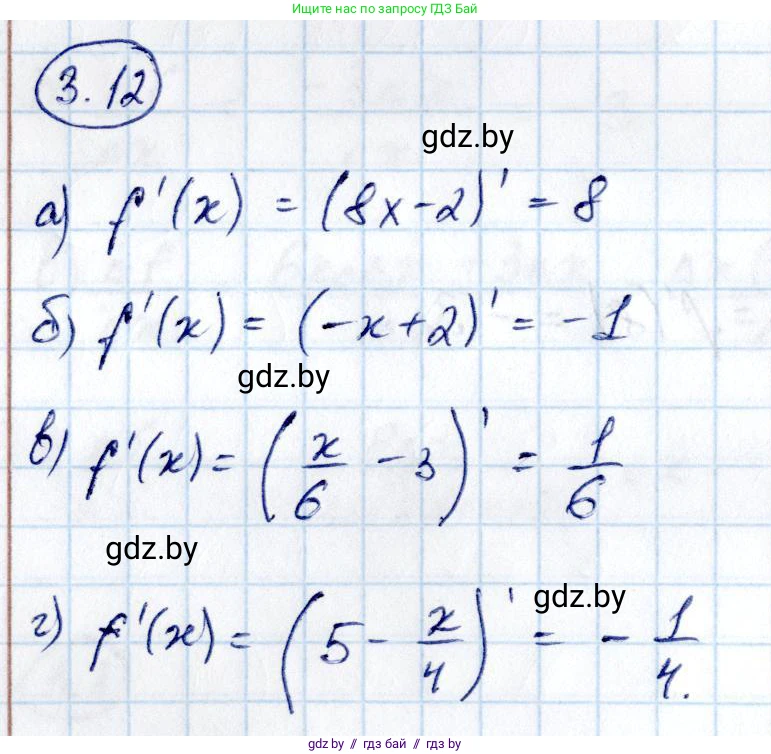 Ищите нас по запросу ГДЗ БЕЛ
3.12
gdz.by
а) f'(x) = (8x-2)' = 8
б) f'(x) = (-x+2)' = -1
gdz.by
в) f'(x) = (x/6 - 3)' = 1/6
gdz.by
gdz.by
г) f'(x) = (5 - x/4)' = - 1/4.
gdz.by // гдз бай // гдз by